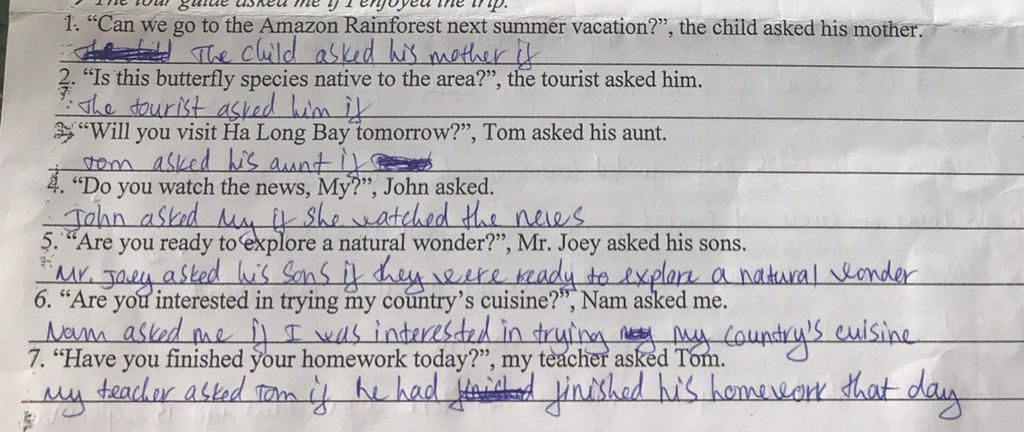 The tour guide asked me if I enjoyed the trip.
1. “Can we go to the Amazon Rainforest next summer vacation?”, the child asked his mother.
The child asked his mother if
2. “Is this butterfly species native to the area?”, the tourist asked him.
The tourist asked him if
3. “Will you visit Ha Long Bay tomorrow?”, Tom asked his aunt.
Tom asked his aunt if
4. “Do you watch the news, My?”, John asked.
John asked My if she watched the news
5. “Are you ready to explore a natural wonder?”, Mr. Joey asked his sons.
Mr. Joey asked his sons if they were ready to explore a natural wonder
6. “Are you interested in trying my country’s cuisine?”, Nam asked me.
Nam asked me if I was interested in trying my country's cuisine
7. “Have you finished your homework today?”, my teacher asked Tom.
My teacher asked Tom if he had finished his homework that day